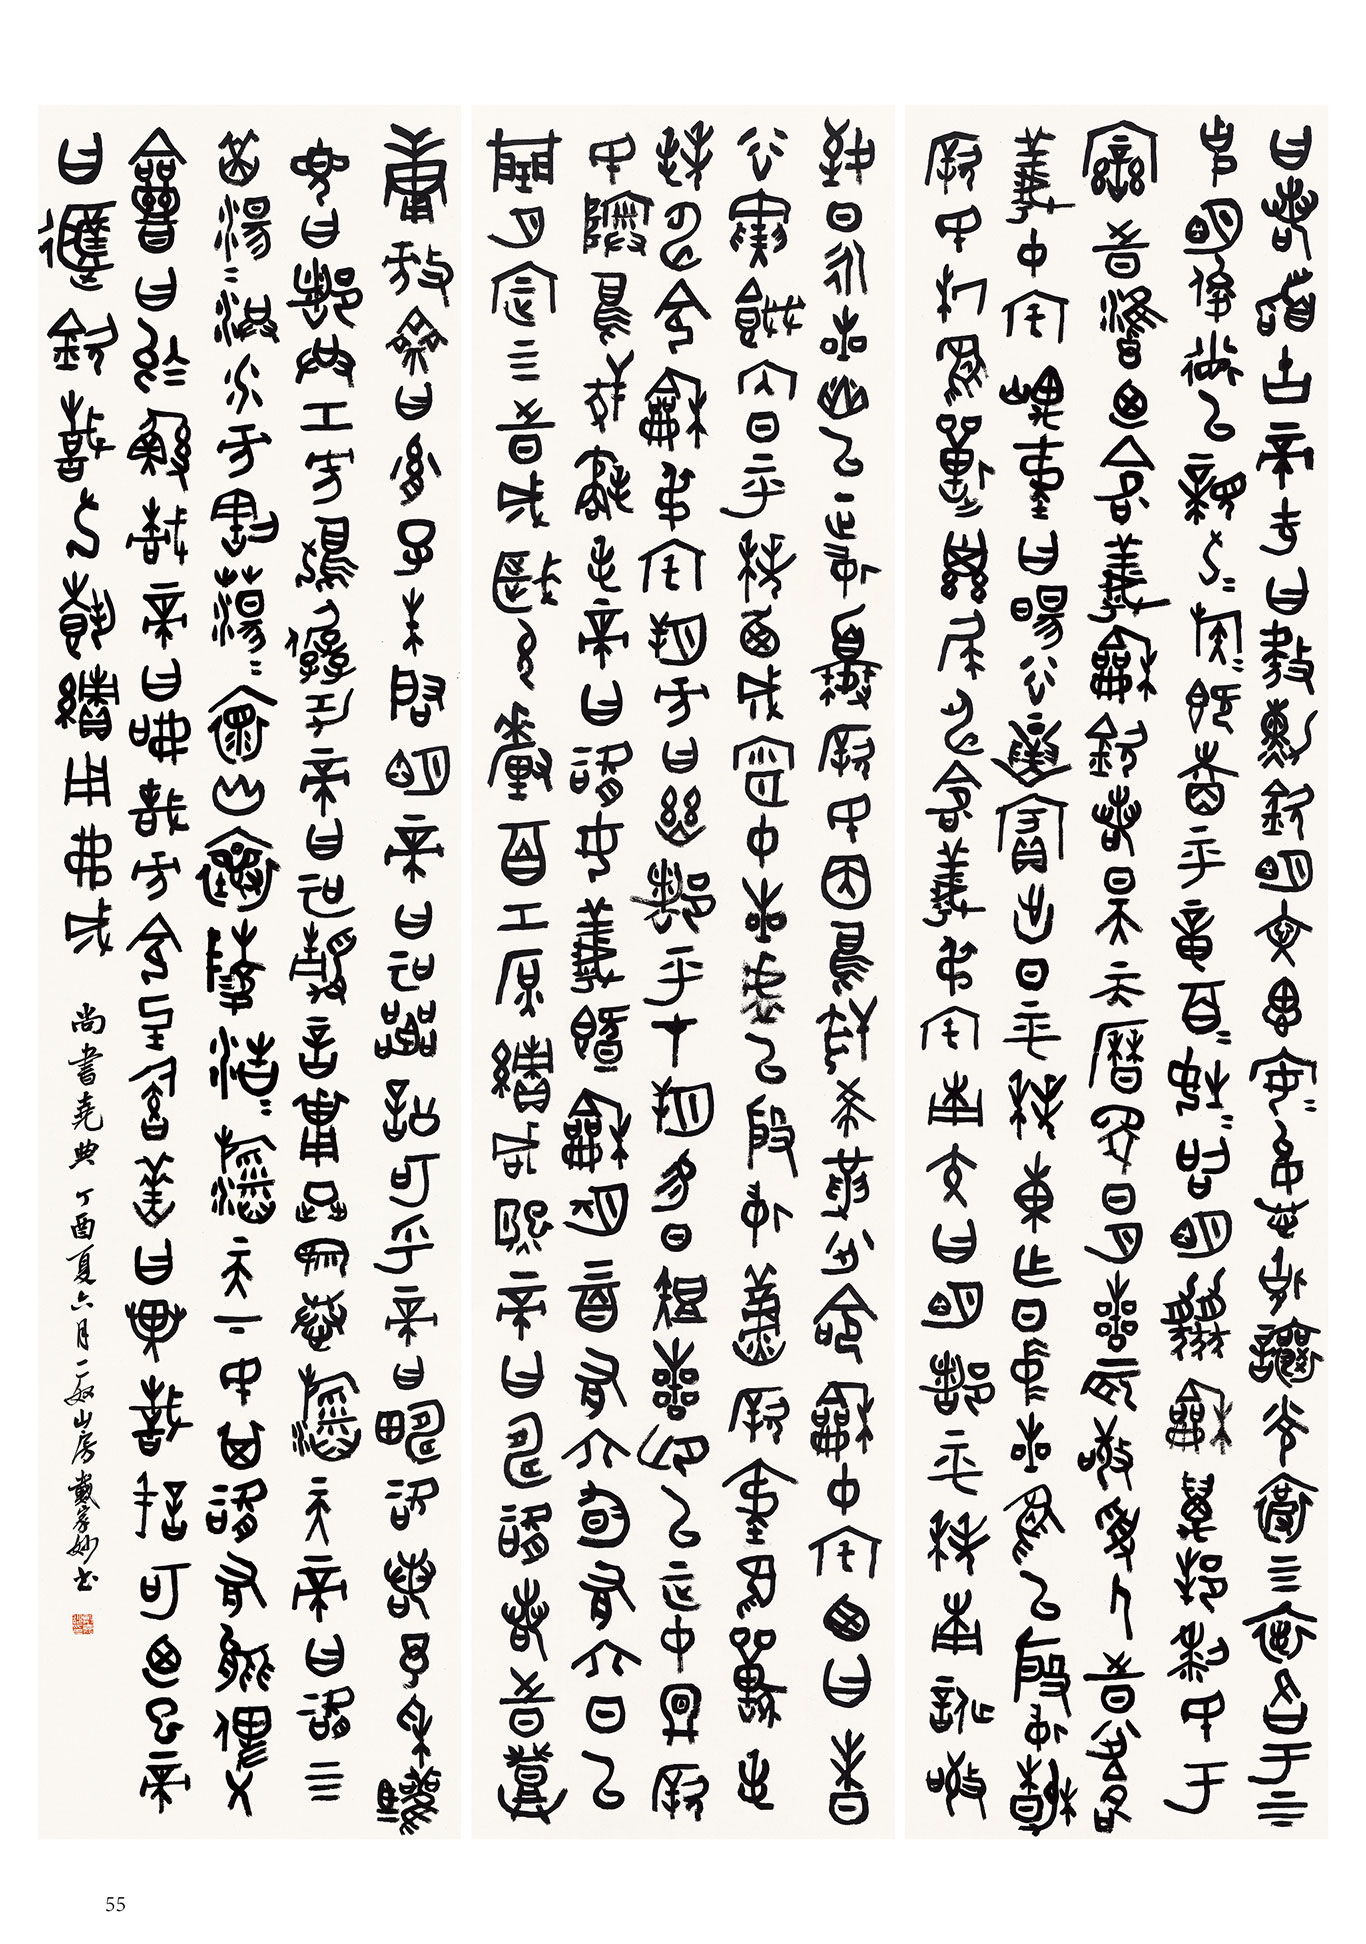 曰若稽古帝堯曰放勳欽明文思安〻允恭克讓光被四表格于上下
克明俊德以親九〻族〻既睦平章百〻姓〻昭明協和萬邦黎民於
變時雍乃命羲和欽若昊天曆象日月星辰敬授人時分命
羲仲宅嵎夷曰暘谷寅賓出日平秩東作日中星鳥以殷仲春
厥民析鳥獸孳尾申命羲叔宅南交曰明都平秩南訛敬
致日永星火以正仲夏厥民因鳥獸希革分命和仲宅西曰昧
谷寅餞納日平秩西成宵中星虛以殷仲秋厥民夷鳥獸毛
毨申命和叔宅朔方曰幽都平在朔易日短星昴以正仲冬厥
民隩鳥獸氄毛帝曰咨汝羲暨和朞三百有六旬有六日以
閏月定四時成歲允釐百工庶績咸熙帝曰疇咨若時登
庸放齊曰胤子朱啟明帝曰吁嚚訟可乎帝曰疇咨若予采驩
兜曰都共工方鳩僝功帝曰吁靜言庸違象恭滔天帝曰咨四
岳湯〻洪水方割蕩〻懷山襄陵浩〻滔天下民其咨有能俾乂
僉曰於鯀哉帝曰咈哉方命圮族岳曰异哉試可乃已帝
曰往欽哉九載績用弗成
尚書堯典 丁酉夏六月一奴山房戴家妙書
55